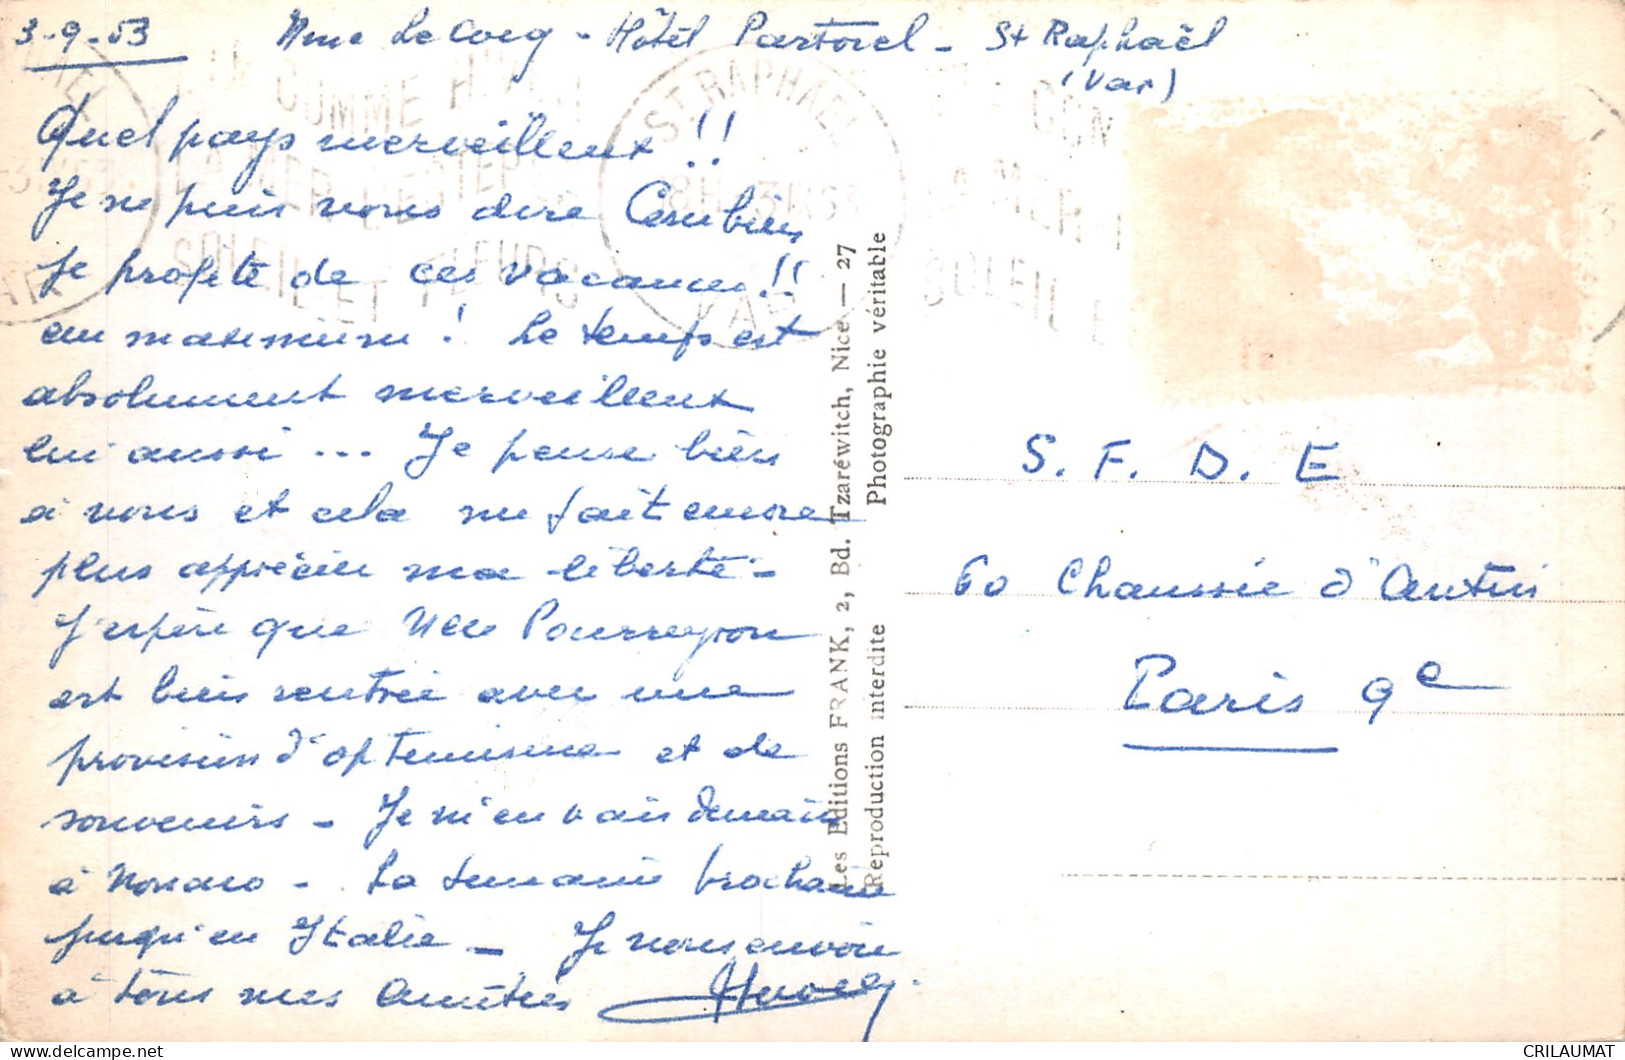 3-9-53 Mme Le Coeg - Hôtel Pastorel - St Raphaël
(Var)
Quel pays merveilleux !!
Je ne puis vous dire Combien
je profite de ces vacances !!
au maximum ! Le temps est
absolument merveilleux
lui aussi ... Je pense bien
à vous et cela me fait encore
plus apprécier ma liberté -
J'espère que Melle Pourreyron
est bien rentrée avec une
provision d'optimisme et de
souvenirs - Je m'en vais demain
à Monaco - La semaine prochaine
jusqu'en Italie - Je vous envoie
à tous mes Amitiés
Les Editions FRANK, 2, Bd. Tzaréwitch, Nice — 27
Reproduction interdite Photographie véritable
ST RAPHAEL
18H 3 IX 53
VAR
COMME HIVER
LA MER
SOLEIL ET FLEURS
S. F. D. E
60 Chaussée d'Antin
Paris 9e
CRILAUMAT